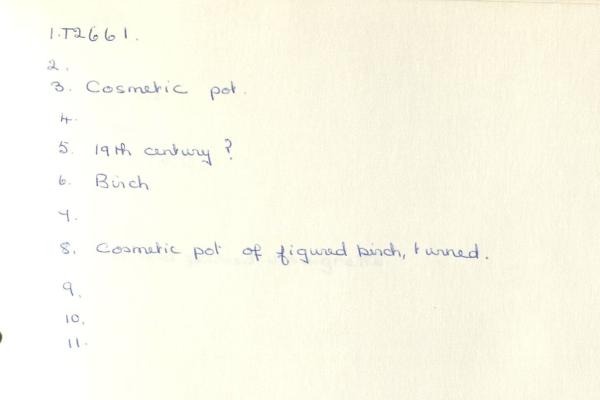 1. T2661.
2.
3. Cosmetic pot.
4.
5. 19th century?
6. Birch
7.
8. Cosmetic pot of figured birch, turned.
9.
10.
11.